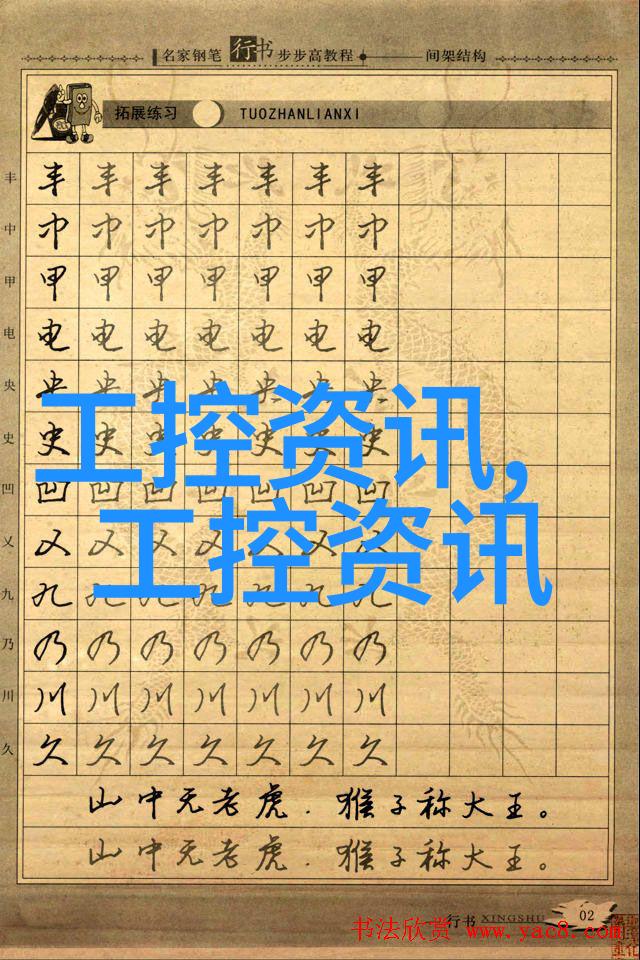 名家钢笔行书步步高教程 间架结构
拓展练习 TUOZHANLIANXI
丰 丰 丰 丰 丰 丰 丰 丰
中 中 中 中 中 中 中 中
甲 甲 甲 甲 甲 甲 甲 甲
电 电 电 电 电 电 电 电
央 央 央 央 央 央 央 央
工控资讯,
史 史 史 史 史 史 史 史
凹 凹 凹 凹 凹 凹 凹 凹
乂 乂 乂 乂 乂 乂 乂 乂
工控资讯
九 九 九 九 九 九 九 九
乃 乃 乃 乃 乃 乃 乃 乃
川 川 川 川 川 川 川 川
久 久 久 久 久 久 久 久
山中无老虎.猴子称大王。
山中无老虎.猴子称大王。
行书 XINGSHU 02
书法欣赏 www.yac8.com